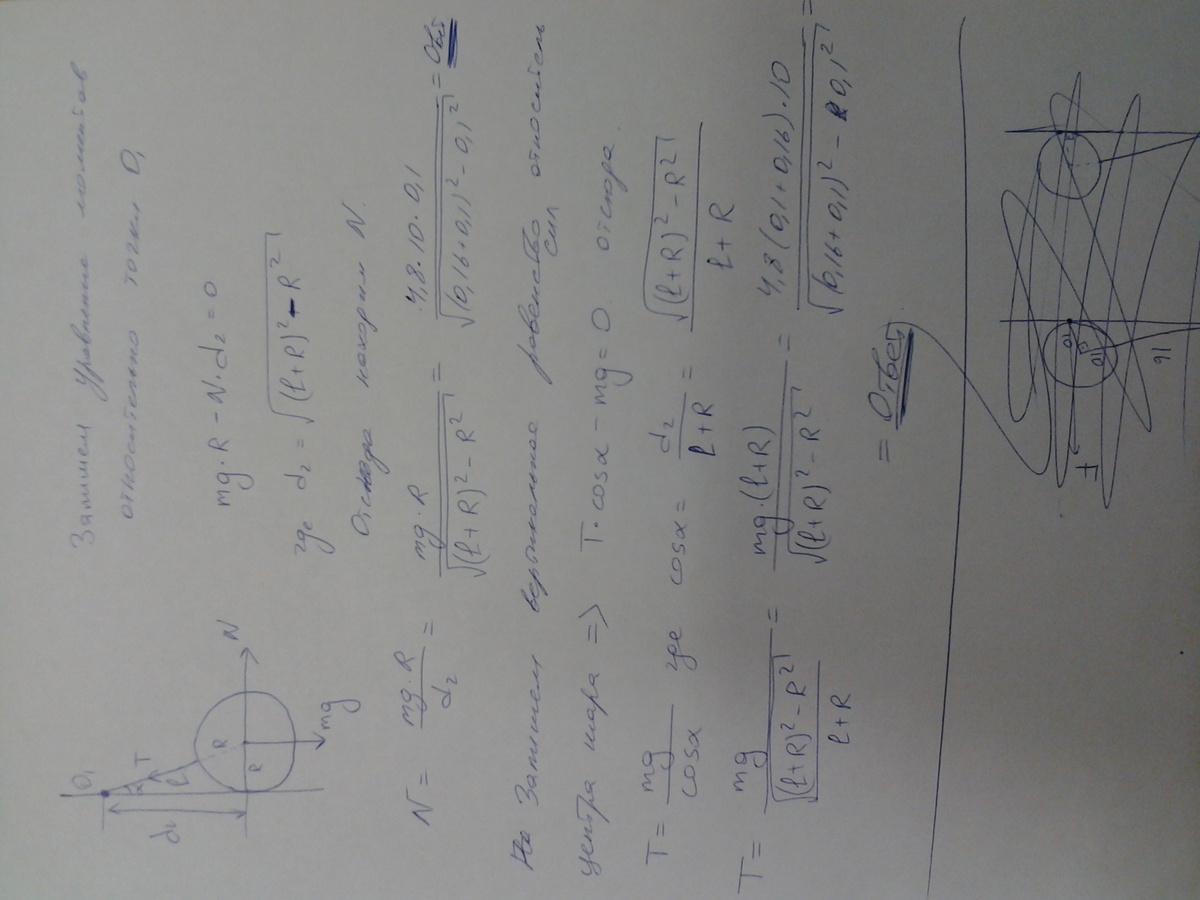 Запишем уравнение моментов
относительно точки O₁
mg·R − N·d₂ = 0
где d₂ = √((ℓ+R)² − R²)
Отсюда находим N.
N = mg·R / d₂ = mg·R / √((ℓ+R)² − R²) = 4,8·10·0,1 / √((0,16+0,1)² − 0,1²) = Отв
Запишем вертикальное равенство сил относительн
центра шара => T·cosα − mg = 0 отсюда.
T = mg / cosα где cosα = d₂ / (ℓ+R) = √((ℓ+R)² − R²) / (ℓ+R)
T = mg / (√((ℓ+R)² − R²) / (ℓ+R)) = mg·(ℓ+R) / √((ℓ+R)² − R²) = 4,8(0,1+0,16)·10 / √((0,16+0,1)² − 0,1²) =
= Ответ
O₁
α
T
ℓ
R
R
N
mg
F
10
10
16